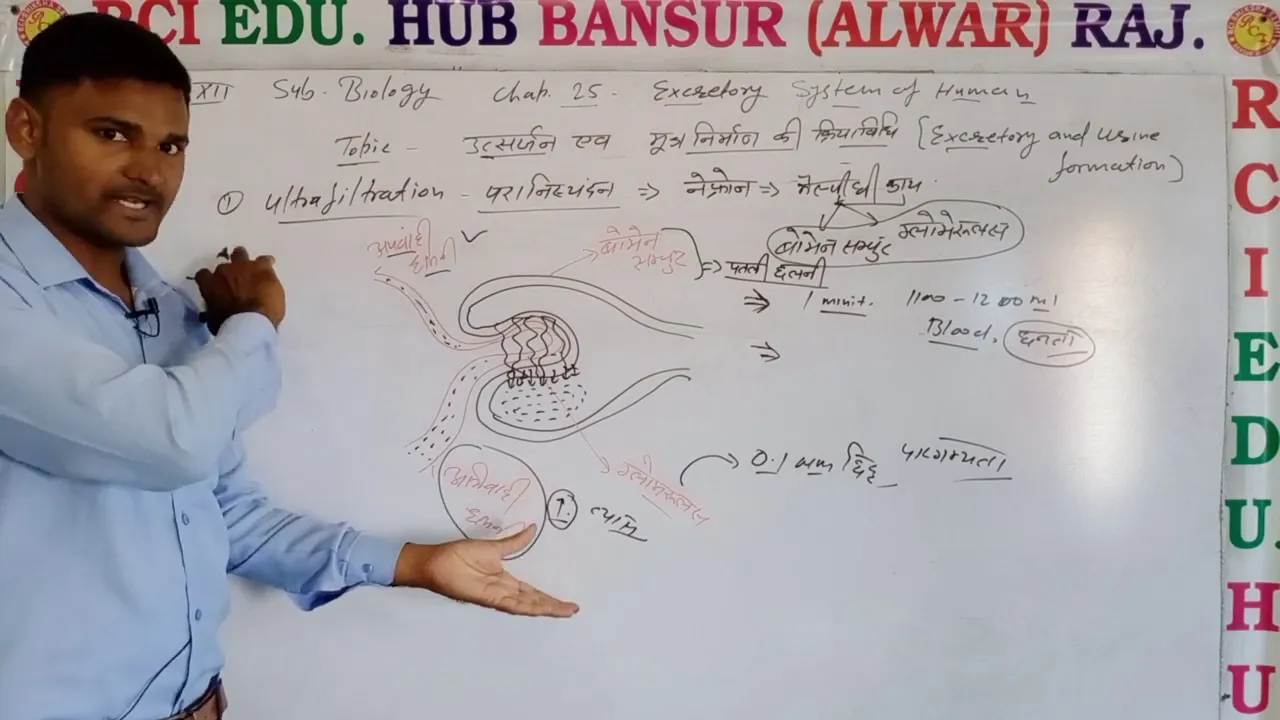 RCI EDU. HUB BANSUR (ALWAR) RAJ.
XII Sub. Biology Chap. 25. Excretory System of Human
Topic - उत्सर्जन एव मूत्र निर्माण की क्रियाविधि [Excretory and urine
formation]
① ultrafiltration - परानिस्यंदन => नेफ्रोन => मैल्पीघी काय.
बोमेन सम्पुट ग्लोमेरूलस
अपवाही
धमनी
बोमेन
सम्पुट
=> पतली छलनी
=> 1 minit. 1100 - 1200 ml
Blood. छनता
=>
अभिवाही
① व्यास
ग्लोमेरूलस
0.1 छिद्र पारगम्यता
R
C
I
E
D
U.
H
U